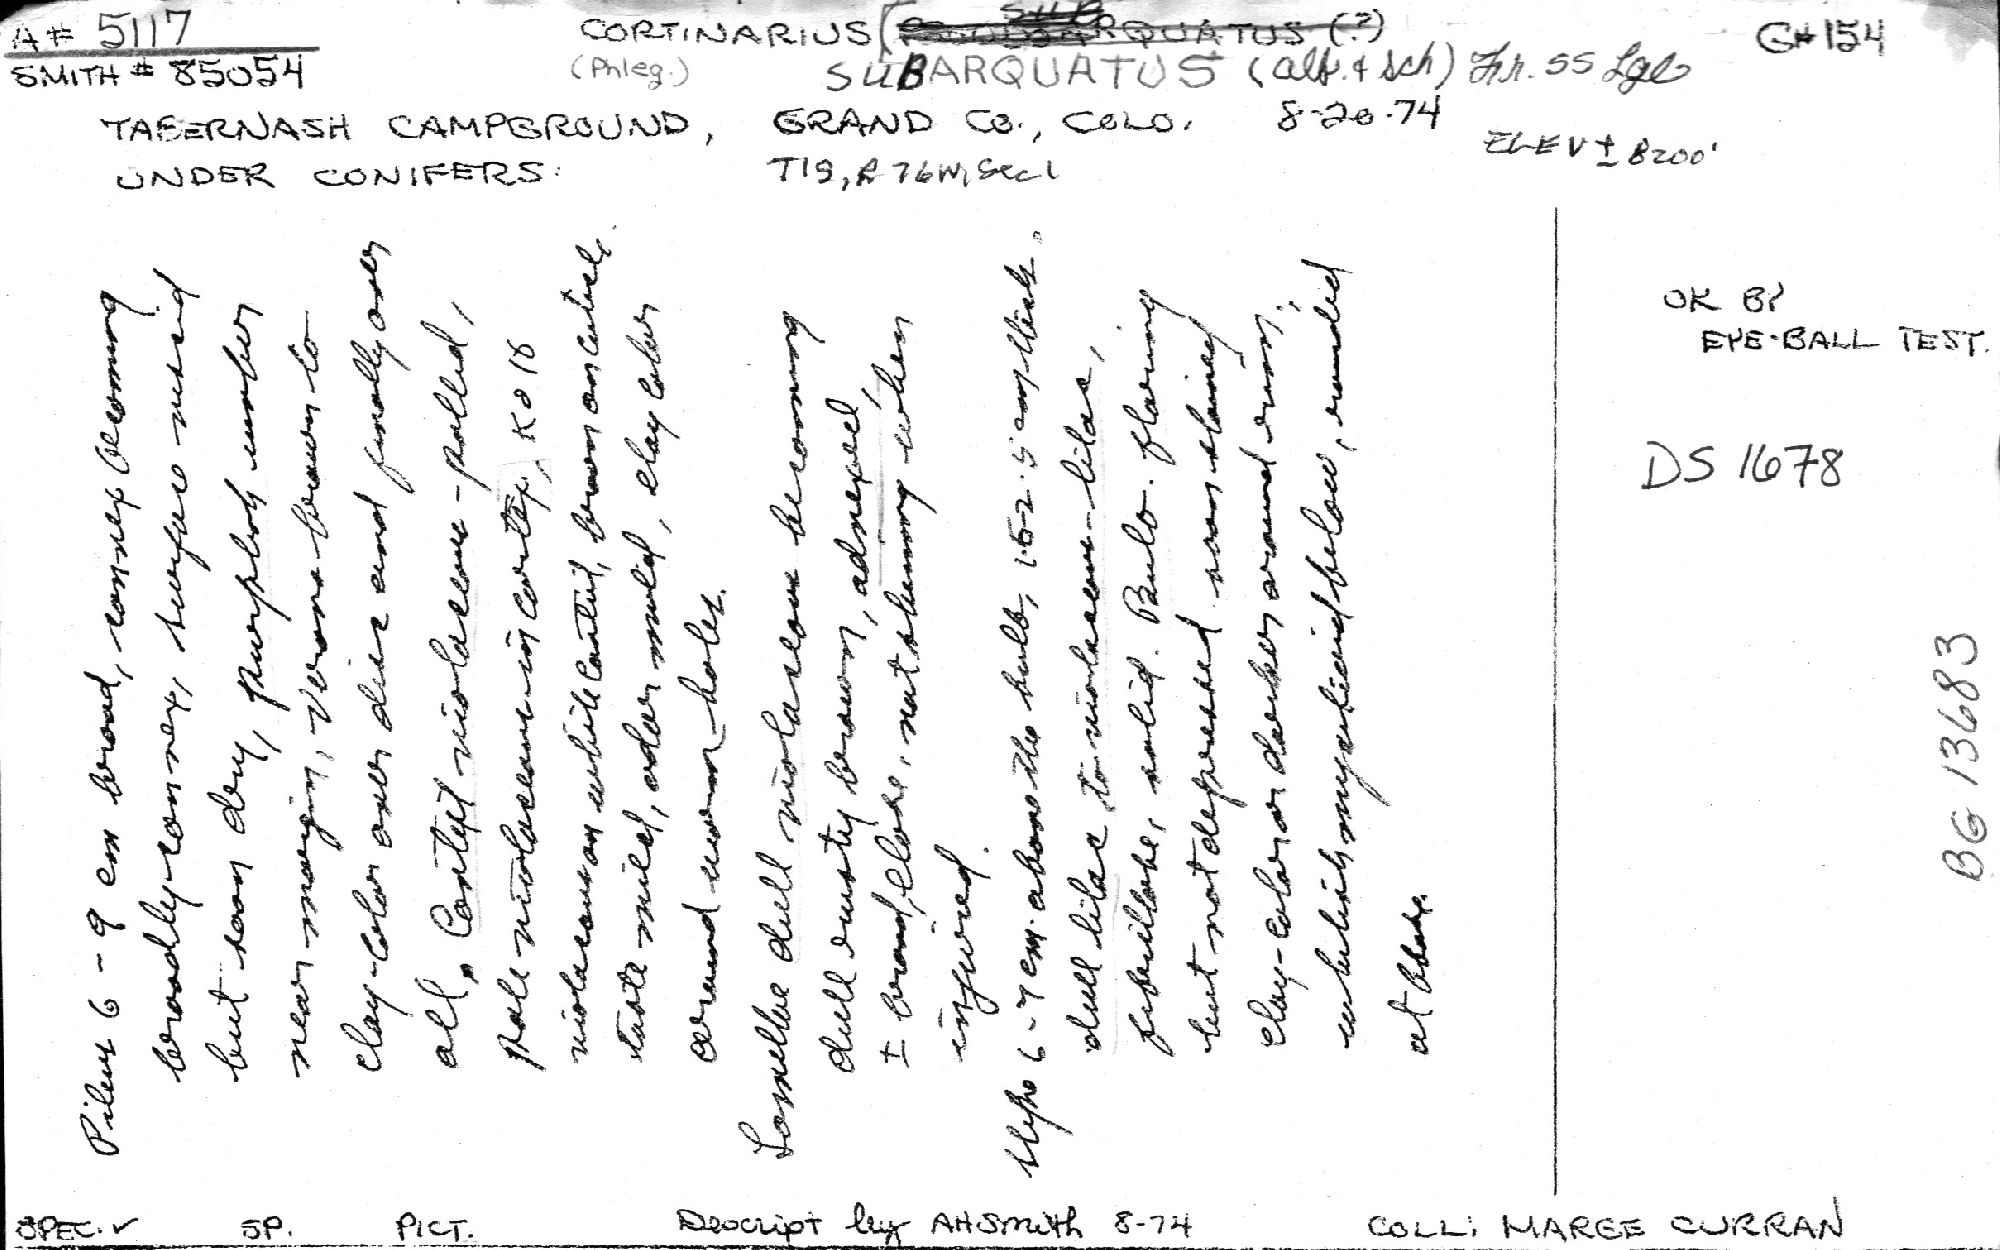 A# 5117
SMITH # 85054
CORTINARIUS [ QUATUS (?)
G#154
(Phleg.) SUBARQUATUS (alb. & Sch) Fr. ss Lge
TABERNASH CAMPGROUND, GRAND CO., COLO. 8-20-74
ELEV ± 8200'
UNDER CONIFERS. T1S, R76W, Sec 1
Pileus 6-9 cm broad, convex becoming
broadly convex, surface viscid
but soon dry, purplish umber
near margin, verona-brown to
clay-color over disc and finally over
all. Context violaceous-pallid,
pale violaceous in cortex, KOH
violaceous on white context, brown on cuticle,
taste mild, odor mild, clay color
around worm-holes.
Lamellae dull violaceous becoming
dull rusty brown, adnexed,
± broad, close, not staining when
injured.
Stipe 6-7 cm above the bulb, 1.5-2.5 cm thick,
dull lilac to violaceous-lilac,
fibrillose, solid. Bulb flaring
but not depressed soon stained
clay-color or darker around rim,
whitish mycelioid below, rounded
at base.
OK BY
EYE-BALL TEST.
DS 1678
BG 13683
SPEC. ✓ SP. PICT. Descript by AHSmith 8-74 COLL: MARGE CURRAN